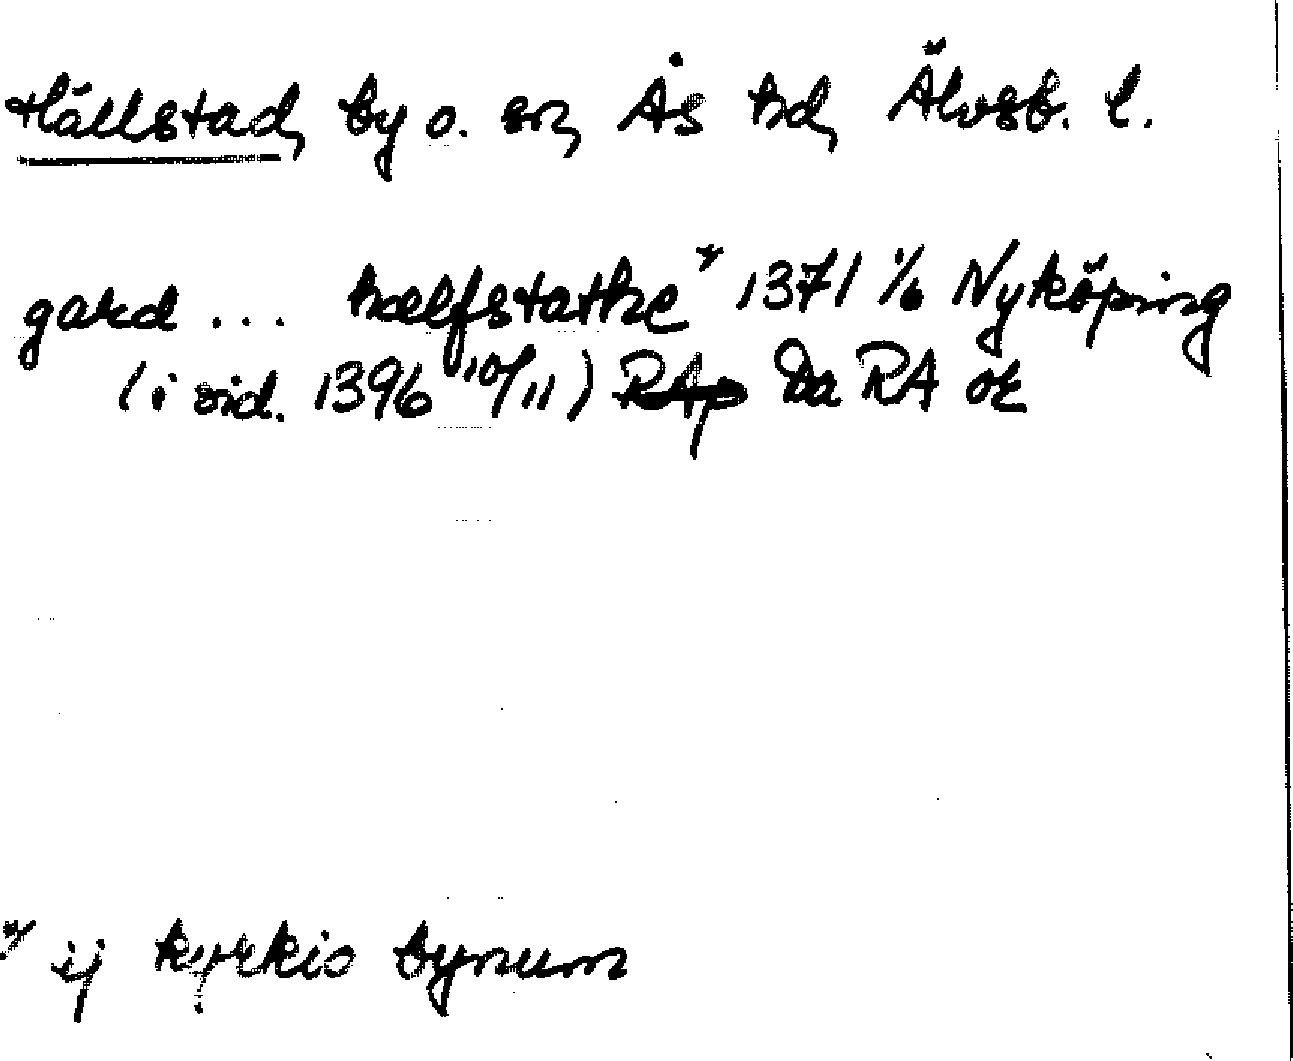 Hällstad, by o. sn, Ås hd, Älvsb. l.
gard ... hælfstathe* 1371 1/6 Nyköping
(i vid. 1396 10/11) RAp Da RA or
* ij kyrkio bynum